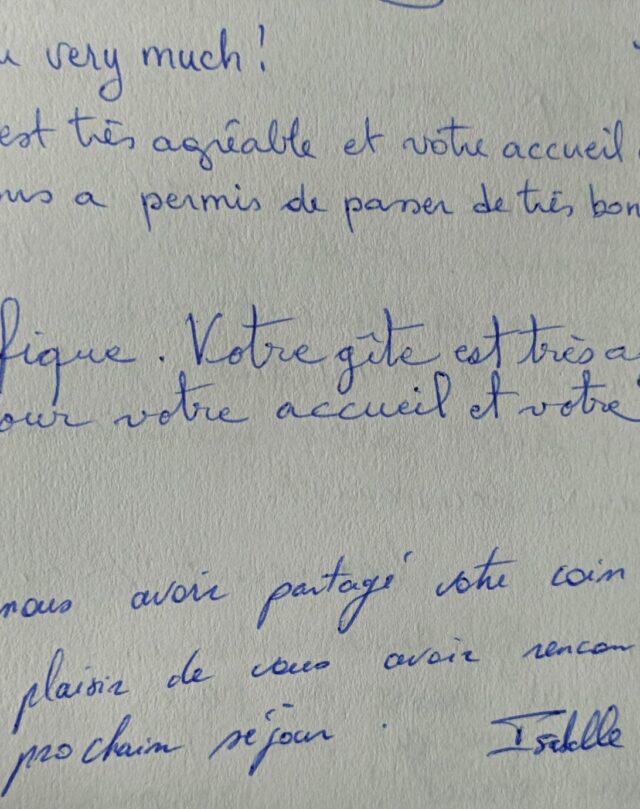 u very much !
est très agréable et votre accueil
ous a permis de passer de très bon
fique. Votre gîte est très a
our votre accueil et votre
nous avoir partagé votre coin
plaisir de vous avoir rencon
prochain séjour. Isabelle